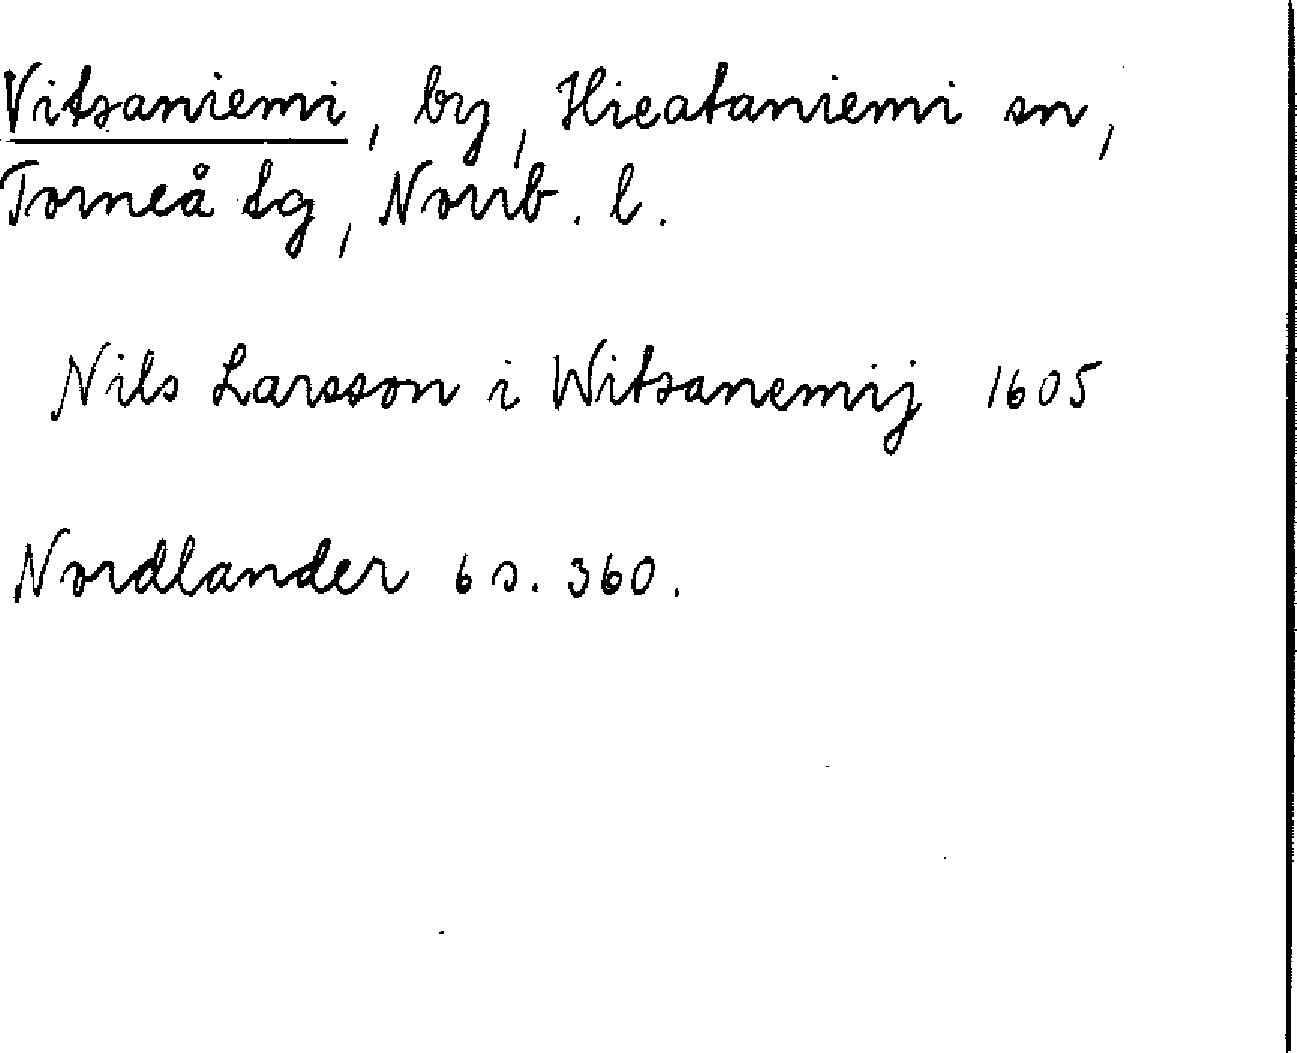 Vitsaniemi, by, Hieataniemi sn,
Torneå tg, Norrb. l.
Nils Larsson i Witsanemij 1605
Nordlander 6 s. 360.